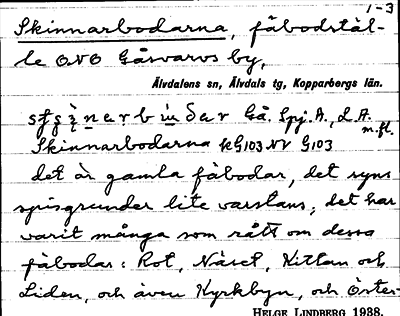 1-3
Skinnarbodarna, fäbodstäl-
le ONO Gåsvarvs by,
Älvdalens sn, Älvdals tg, Kopparbergs län.
Gå. Spj. A., L. A. m.fl.
Skinnarbodarna kG103 NV G103
det är gamla fäbodar, det syns
spisgrunder lite varstans; det har
varit många som rått om dessa
fäbodar: Rot, Näset, Kittan och
Liden, och även Kyrkbyn, och Öster-
HELGE LINDBERG 1938.